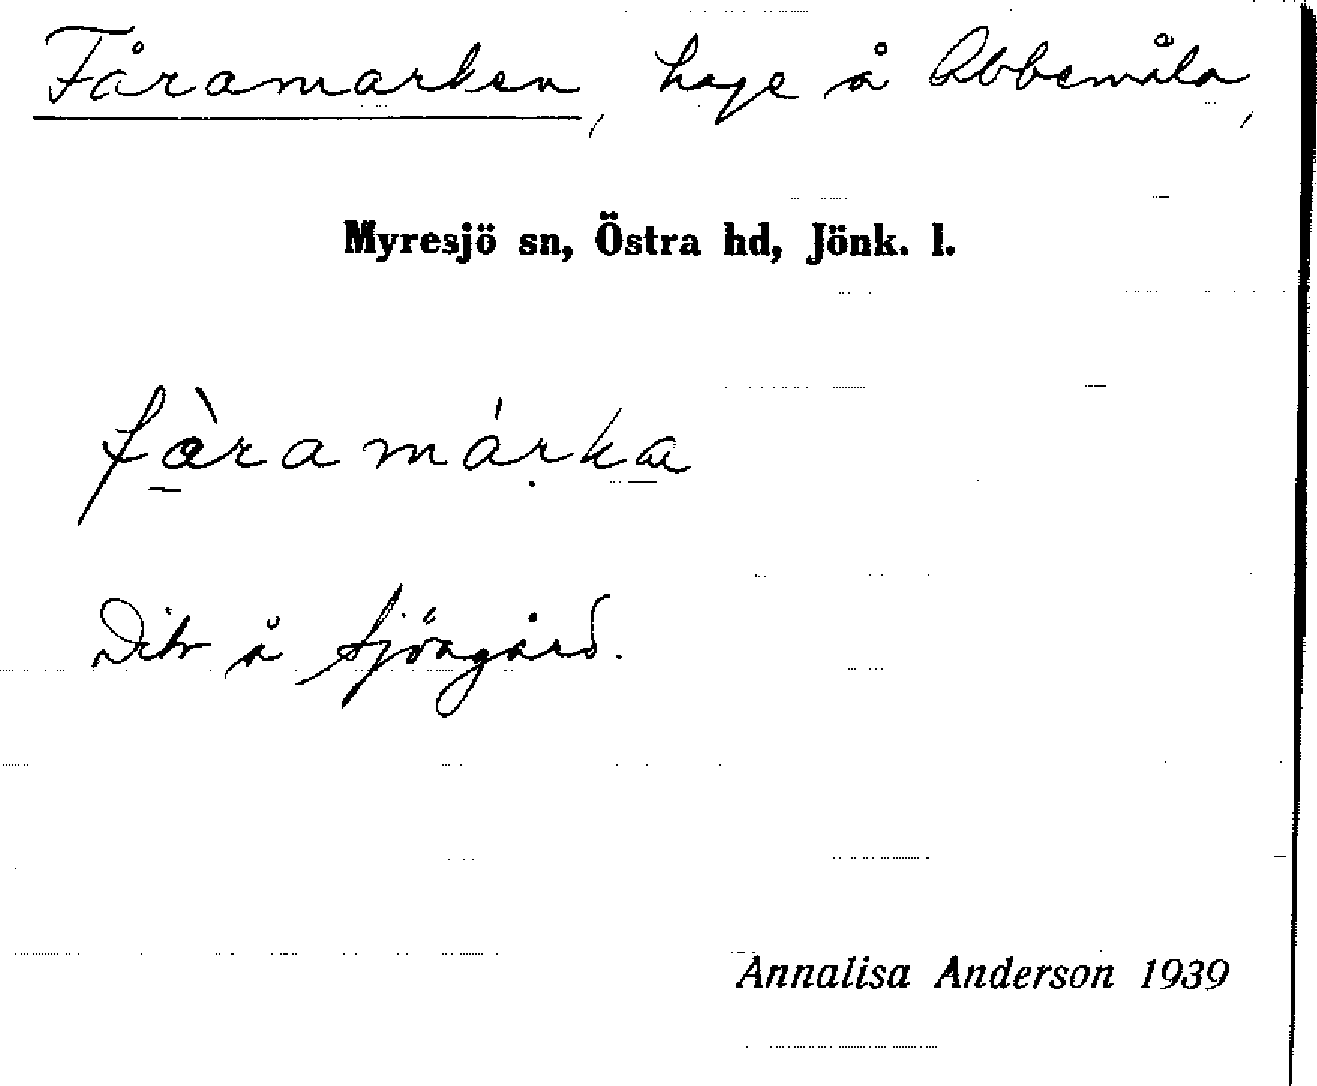 Fåramarken, hage å Abbemåla,
Myresjö sn, Östra hd, Jönk. l.
fàramárka
Dito å Sjöagård.
Annalisa Anderson 1939